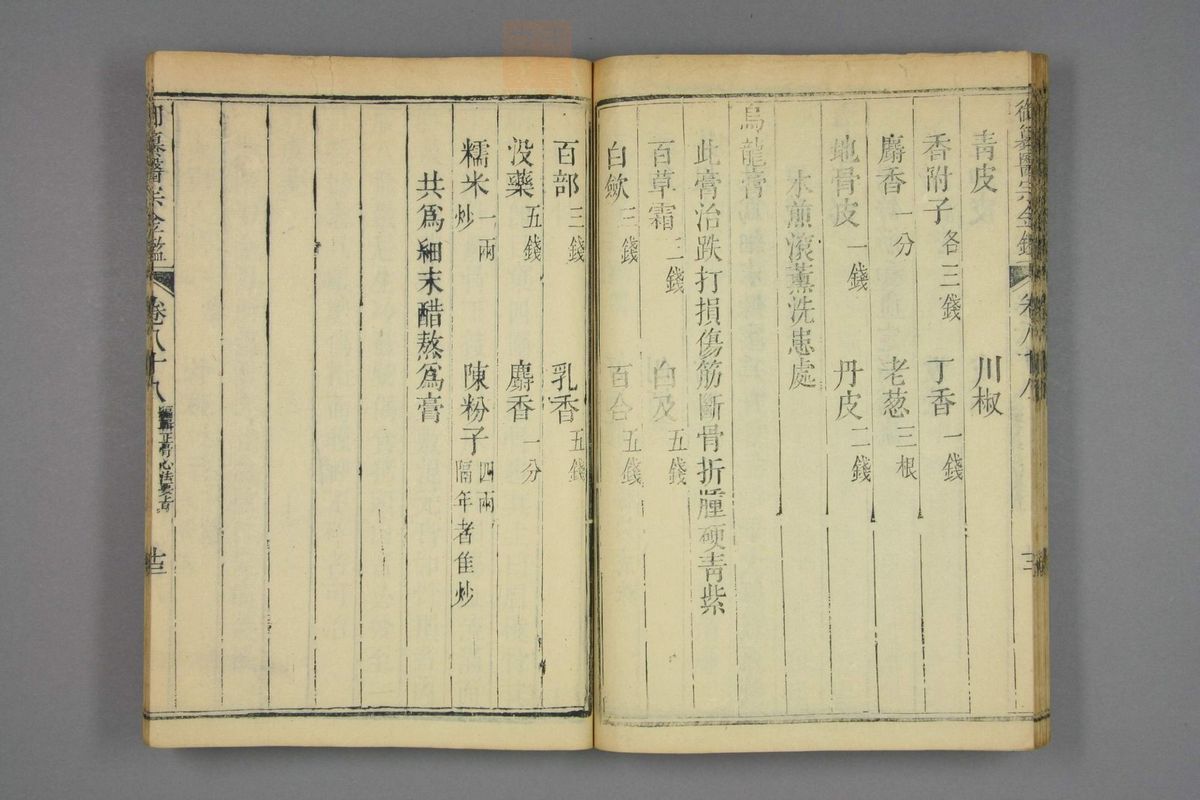 青皮 川椒
香附子各三錢 丁香一錢
麝香一分 老葱三根
地骨皮一錢 丹皮二錢
水煎滚薰洗患處
烏龍膏
此膏治跌打損傷筋斷骨折腫硬青紫
百草霜三錢 白及五錢
白歛三錢 百合五錢
百部三錢 乳香五錢
没藥五錢 麝香一分
糯米一兩炒 陳粉子四兩隔年者隹炒
共爲細末醋熬爲膏
御纂醫宗金鑑 卷八十八 編輯正骨心法要旨